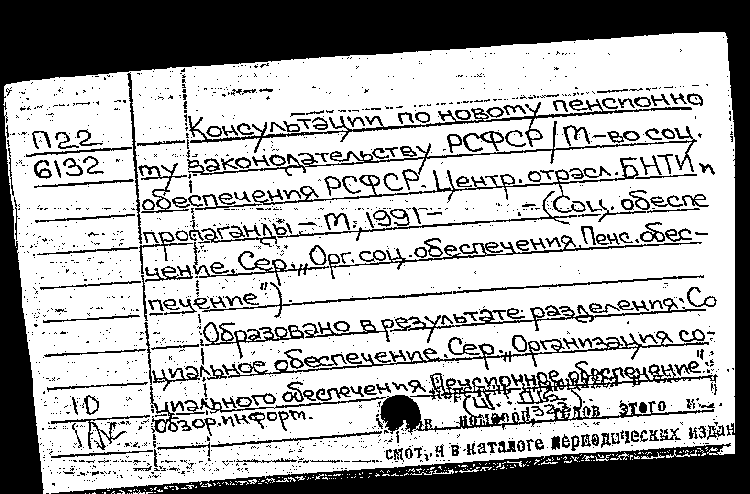 Консультации по новому пенсионно
П22
му законодательству РСФСР / М-во соц.
6132
обеспечения РСФСР. Центр. отрасл. БНТИ и
пропаганды. – М., 1991– . – (Соц. обеспе
чение. Сер. „Орг. соц. обеспечения. Пенс. обес-
печение")
Образовано в результате разделения: Со
циальное обеспечение. Сер. „Организация со-
циального обеспечения. Пенсионное обеспечение"
1D
Обзор. информ.
номеров, этого
смот. и в каталоге периодических издан